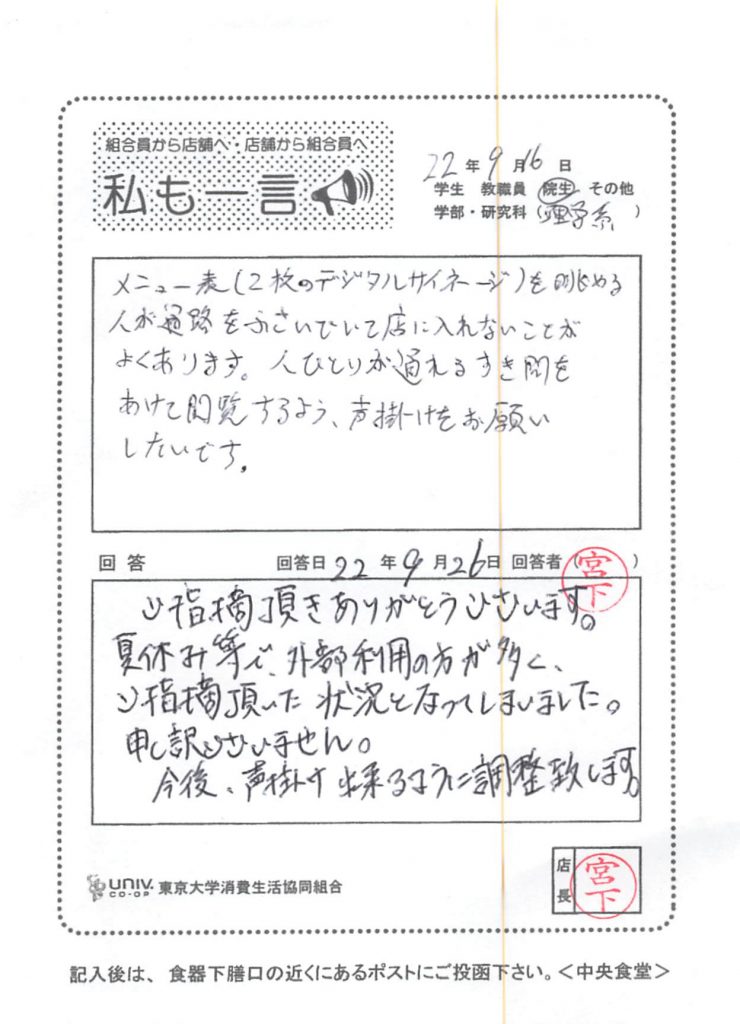 組合員から店舗へ・店舗から組合員へ
私も一言
22年9月16日
学生 教職員 院生 その他
学部・研究科(理学系)
メニュー表(2枚のデジタルサイネージ)を眺める
人が通路をふさいでいて店に入れないことが
よくあります。人ひとりが通れるすき間を
あけて閲覧するよう、声掛けをお願い
したいです。
回答 回答日 22年9月26日 回答者(宮下)
ご指摘頂きありがとうございます。
夏休み等で、外部利用の方が多く、
ご指摘頂いた状況となってしまいました。
申し訳ございません。
今後、声掛け出来るように調整致します。
UNIV. CO-OP 東京大学消費生活協同組合
店長 宮下
記入後は、食器下膳口の近くにあるポストにご投函下さい。<中央食堂>